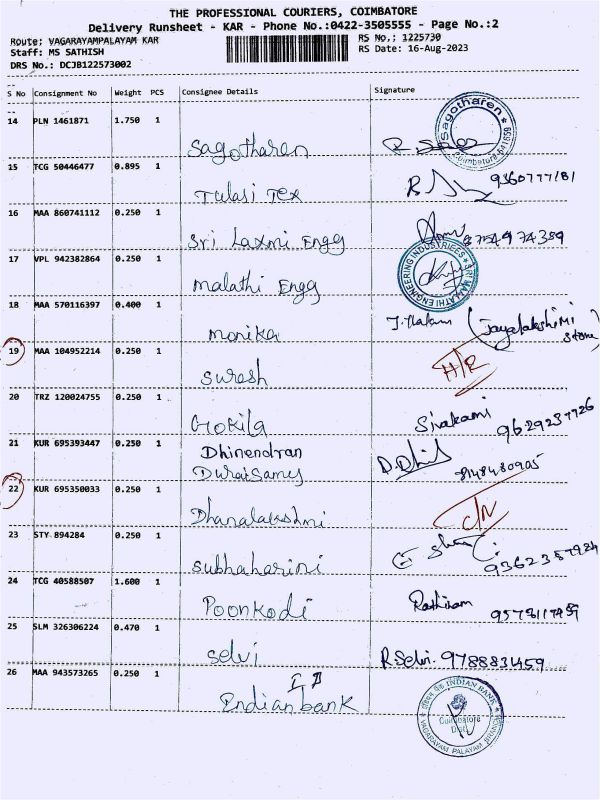 THE PROFESSIONAL COURIERS, COIMBATORE
Delivery Runsheet - KAR - Phone No.:0422-3505555 - Page No.:2
Route: VAGARAYAMPALAYAM KAR
RS No.; 1225730
Staff: MS SATHISH
RS Date: 16-Aug-2023
DRS No.: DCJB122573002
S No Consignment No Weight PCS Consignee Details Signature
14 PLN 1461871 1.750 1
Sagotharen
Sagotharen
Coimbatore-641659
15 TCG 50446477 0.895 1
Tulasi Tex
9360777181
16 MAA 860741112 0.250 1
Sri Laxmi Engg
8754974359
17 VPL 942382864 0.250 1
Malathi Engg
SRI MALATHI ENGINEERING INDUSTRIES
18 MAA 570116397 0.400 1
Monika
(Jayalakshimi
store)
19 MAA 104952214 0.250 1
Suresh
H/R
20 TRZ 120024755 0.250 1
Gokila
Sivakami
21 KUR 695393447 0.250 1
Dhinendran
Duraisamy
8148480905
22 KUR 695350033 0.250 1
Dhanalakshmi
C/N
23 STY 894284 0.250 1
Subhaharini
24 TCG 40588507 1.600 1
Poonkodi
25 SLM 326306224 0.470 1
Selvi
R.Selvi. 9788831459
26 MAA 943573265 0.250 1
I II
Indian bank
INDIAN BANK
Coimbatore
Dist.
VAGARAYAM PALAYAM BRANCH